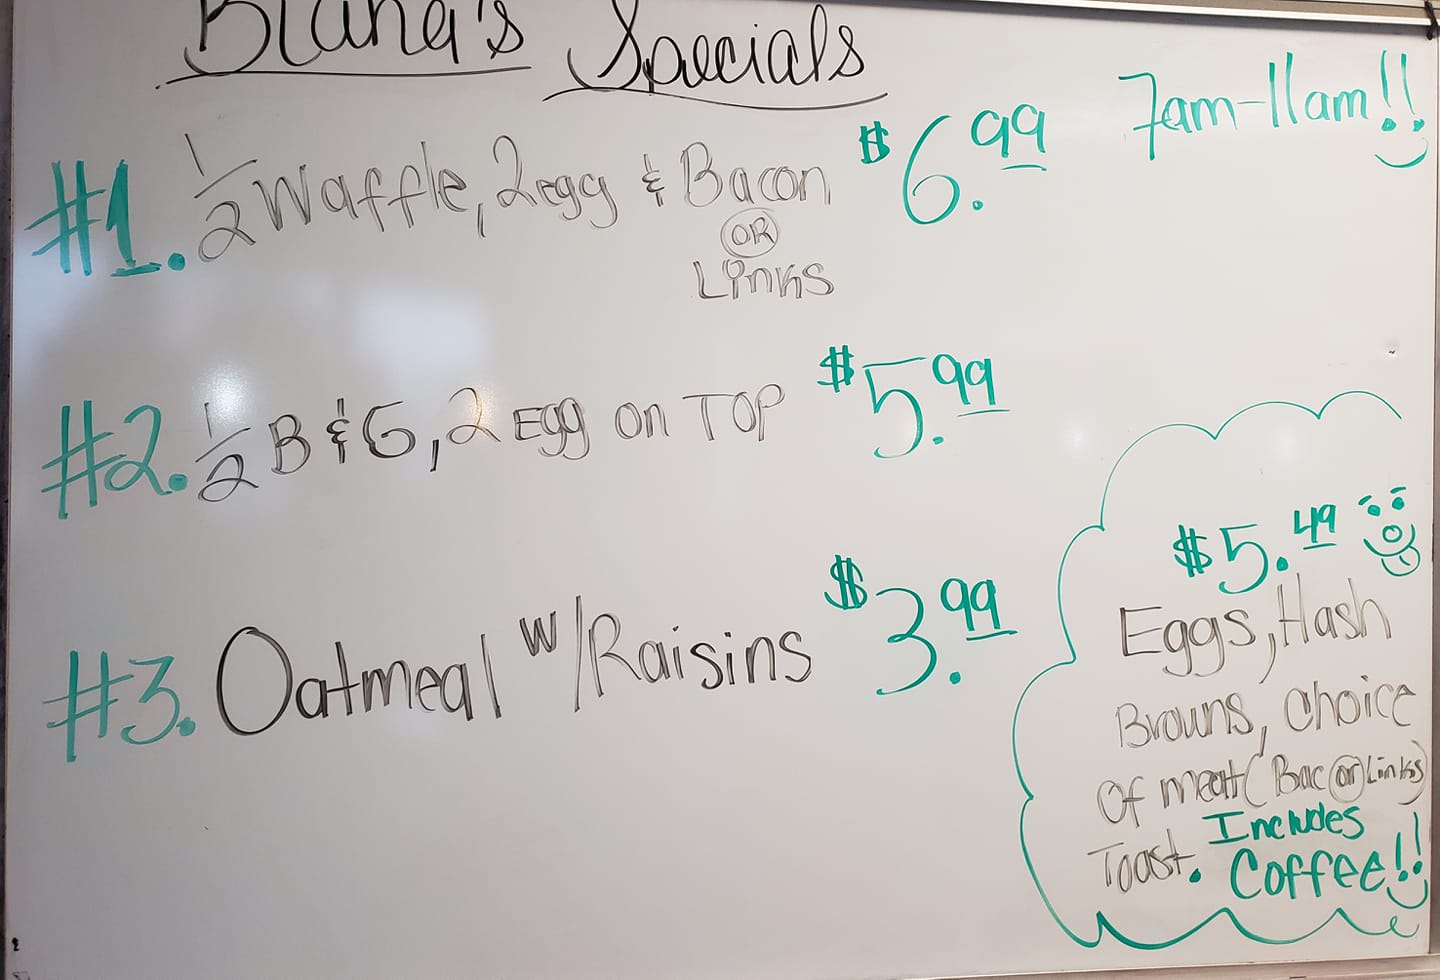 Specials
7am-11am!!
#1. 1/2 Waffle, 2 egg & Bacon $6.99
OR
Links
#2. 1/2 B & G, 2 Egg on TOP $5.99
#3. Oatmeal w/Raisins $3.99
$5.49
Eggs, Hash
Browns, choice
Of meat (Bac or Links)
Toast. Includes
Coffee!!